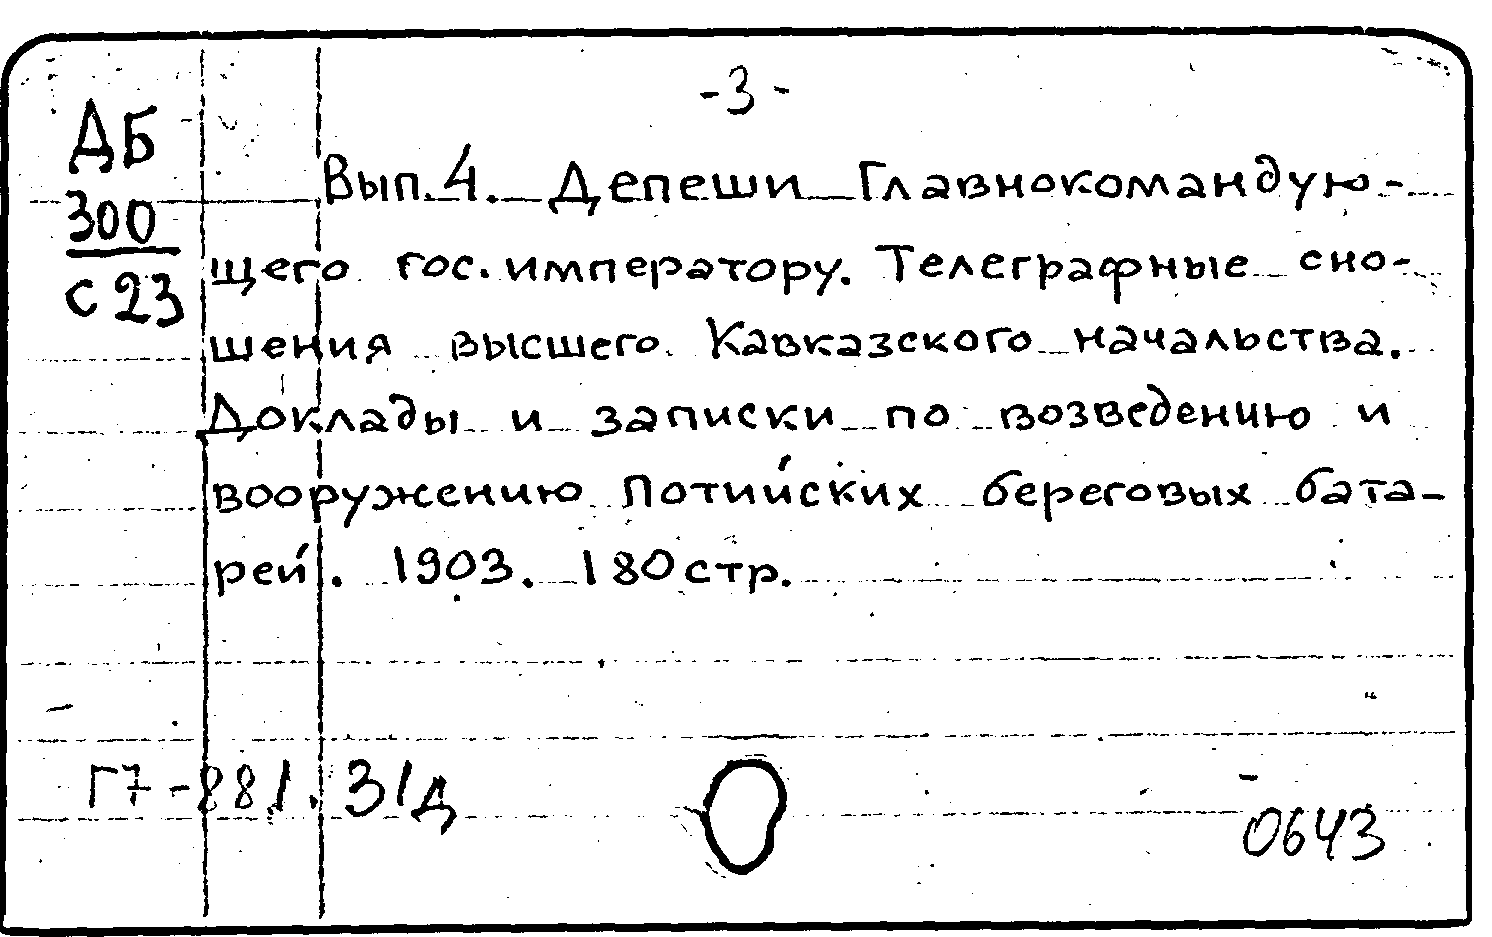 -3-
ДБ
300
с 23
Вып.4. Депеши Главнокомандую-
щего гос. императору. Телеграфные сно-
шения высшего Кавказского начальства.
Доклады и записки по возведению и
вооружению Потийских береговых бата-
рей. 1903. 180 стр.
Г7-881. 31д
0643